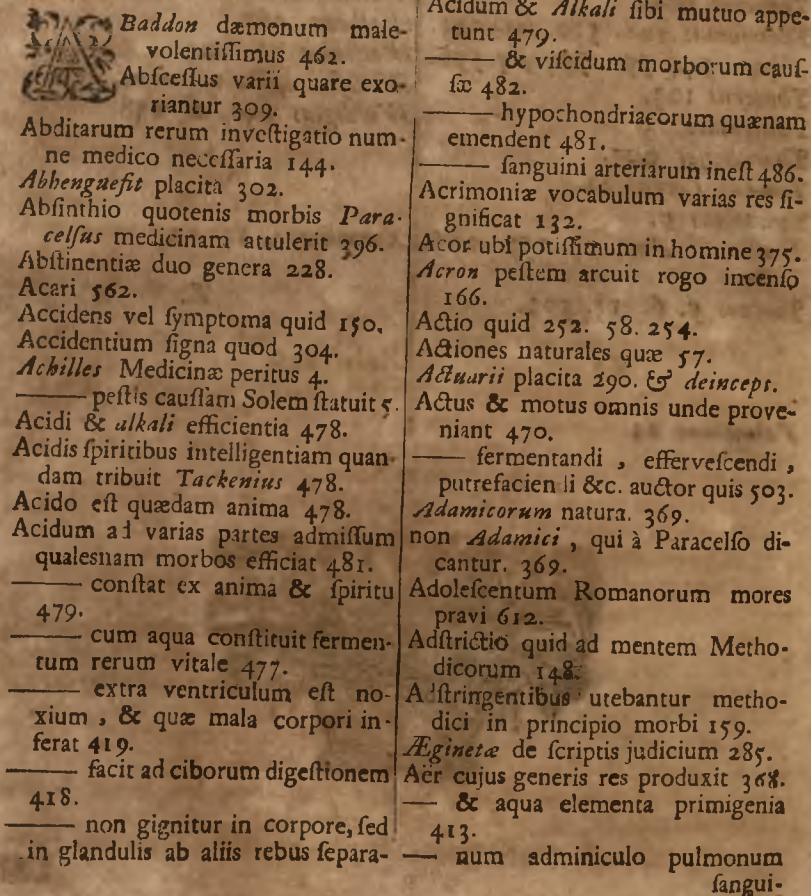 ABaddon dæmonum male-
volentiſſimus 462.
Abſceſſus varii quare exo-
riantur 309.
Abditarum rerum inveſtigatio num-
ne medico neceſſaria 144.
Abhenguefit placita 302.
Abſinthio quotenis morbis Para-
celſus medicinam attulerit 396.
Abſtinentiæ duo genera 228.
Acari 562.
Accidens vel ſymptoma quid 150.
Accidentium ſigna quod 304.
Achilles Medicinæ peritus 4.
—— peſtis cauſſam Solem ſtatuit 5.
Acidi & alkali efficientia 478.
Acidis ſpiritibus intelligentiam quan-
dam tribuit Tackenius 478.
Acido eſt quædam anima 478.
Acidum ad varias partes admiſſum
qualesnam morbos efficiat 481.
—— conſtat ex anima & ſpiritu
479.
—— cum aqua conſtituit fermen-
tum rerum vitale 477.
—— extra ventriculum eſt no-
xium , & quæ mala corpori in-
ferat 419.
—— facit ad ciborum digeſtionem
418.
—— non gignitur in corpore, ſed
in glandulis ab aliis rebus ſepara-
Acidum & Alkali ſibi mutuo appe-
tunt 479.
—— & viſcidum morborum cauſ-
ſæ 482.
—— hypochondriacorum quænam
emendent 481.
—— ſanguini arteriarum ineſt 486.
Acrimoniæ vocabulum varias res ſi-
gnificat 132.
Acor ubi potiſſimum in homine 375.
Acron peſtem arcuit rogo incenſo
166.
Actio quid 252. 58. 254.
Actiones naturales quæ 57.
Actuarii placita 290. & deincept.
Actus & motus omnis unde prove-
niant 470.
—— fermentandi , efferveſcendi ,
putrefacien li &c. auctor quis 503.
Adamicorum natura. 369.
non Adamici , qui à Paracelſo di-
cantur. 369.
Adoleſcentum Romanorum mores
pravi 612.
Adſtrictio quid ad mentem Metho-
dicorum 148.
Adſtringentibus utebantur metho-
dici in principio morbi 159.
Æginetæ de ſcriptis judicium 285.
Aër cujus generis res produxit 368.
— & aqua elementa primigenia
413.
— num adminiculo pulmonum
ſangui-